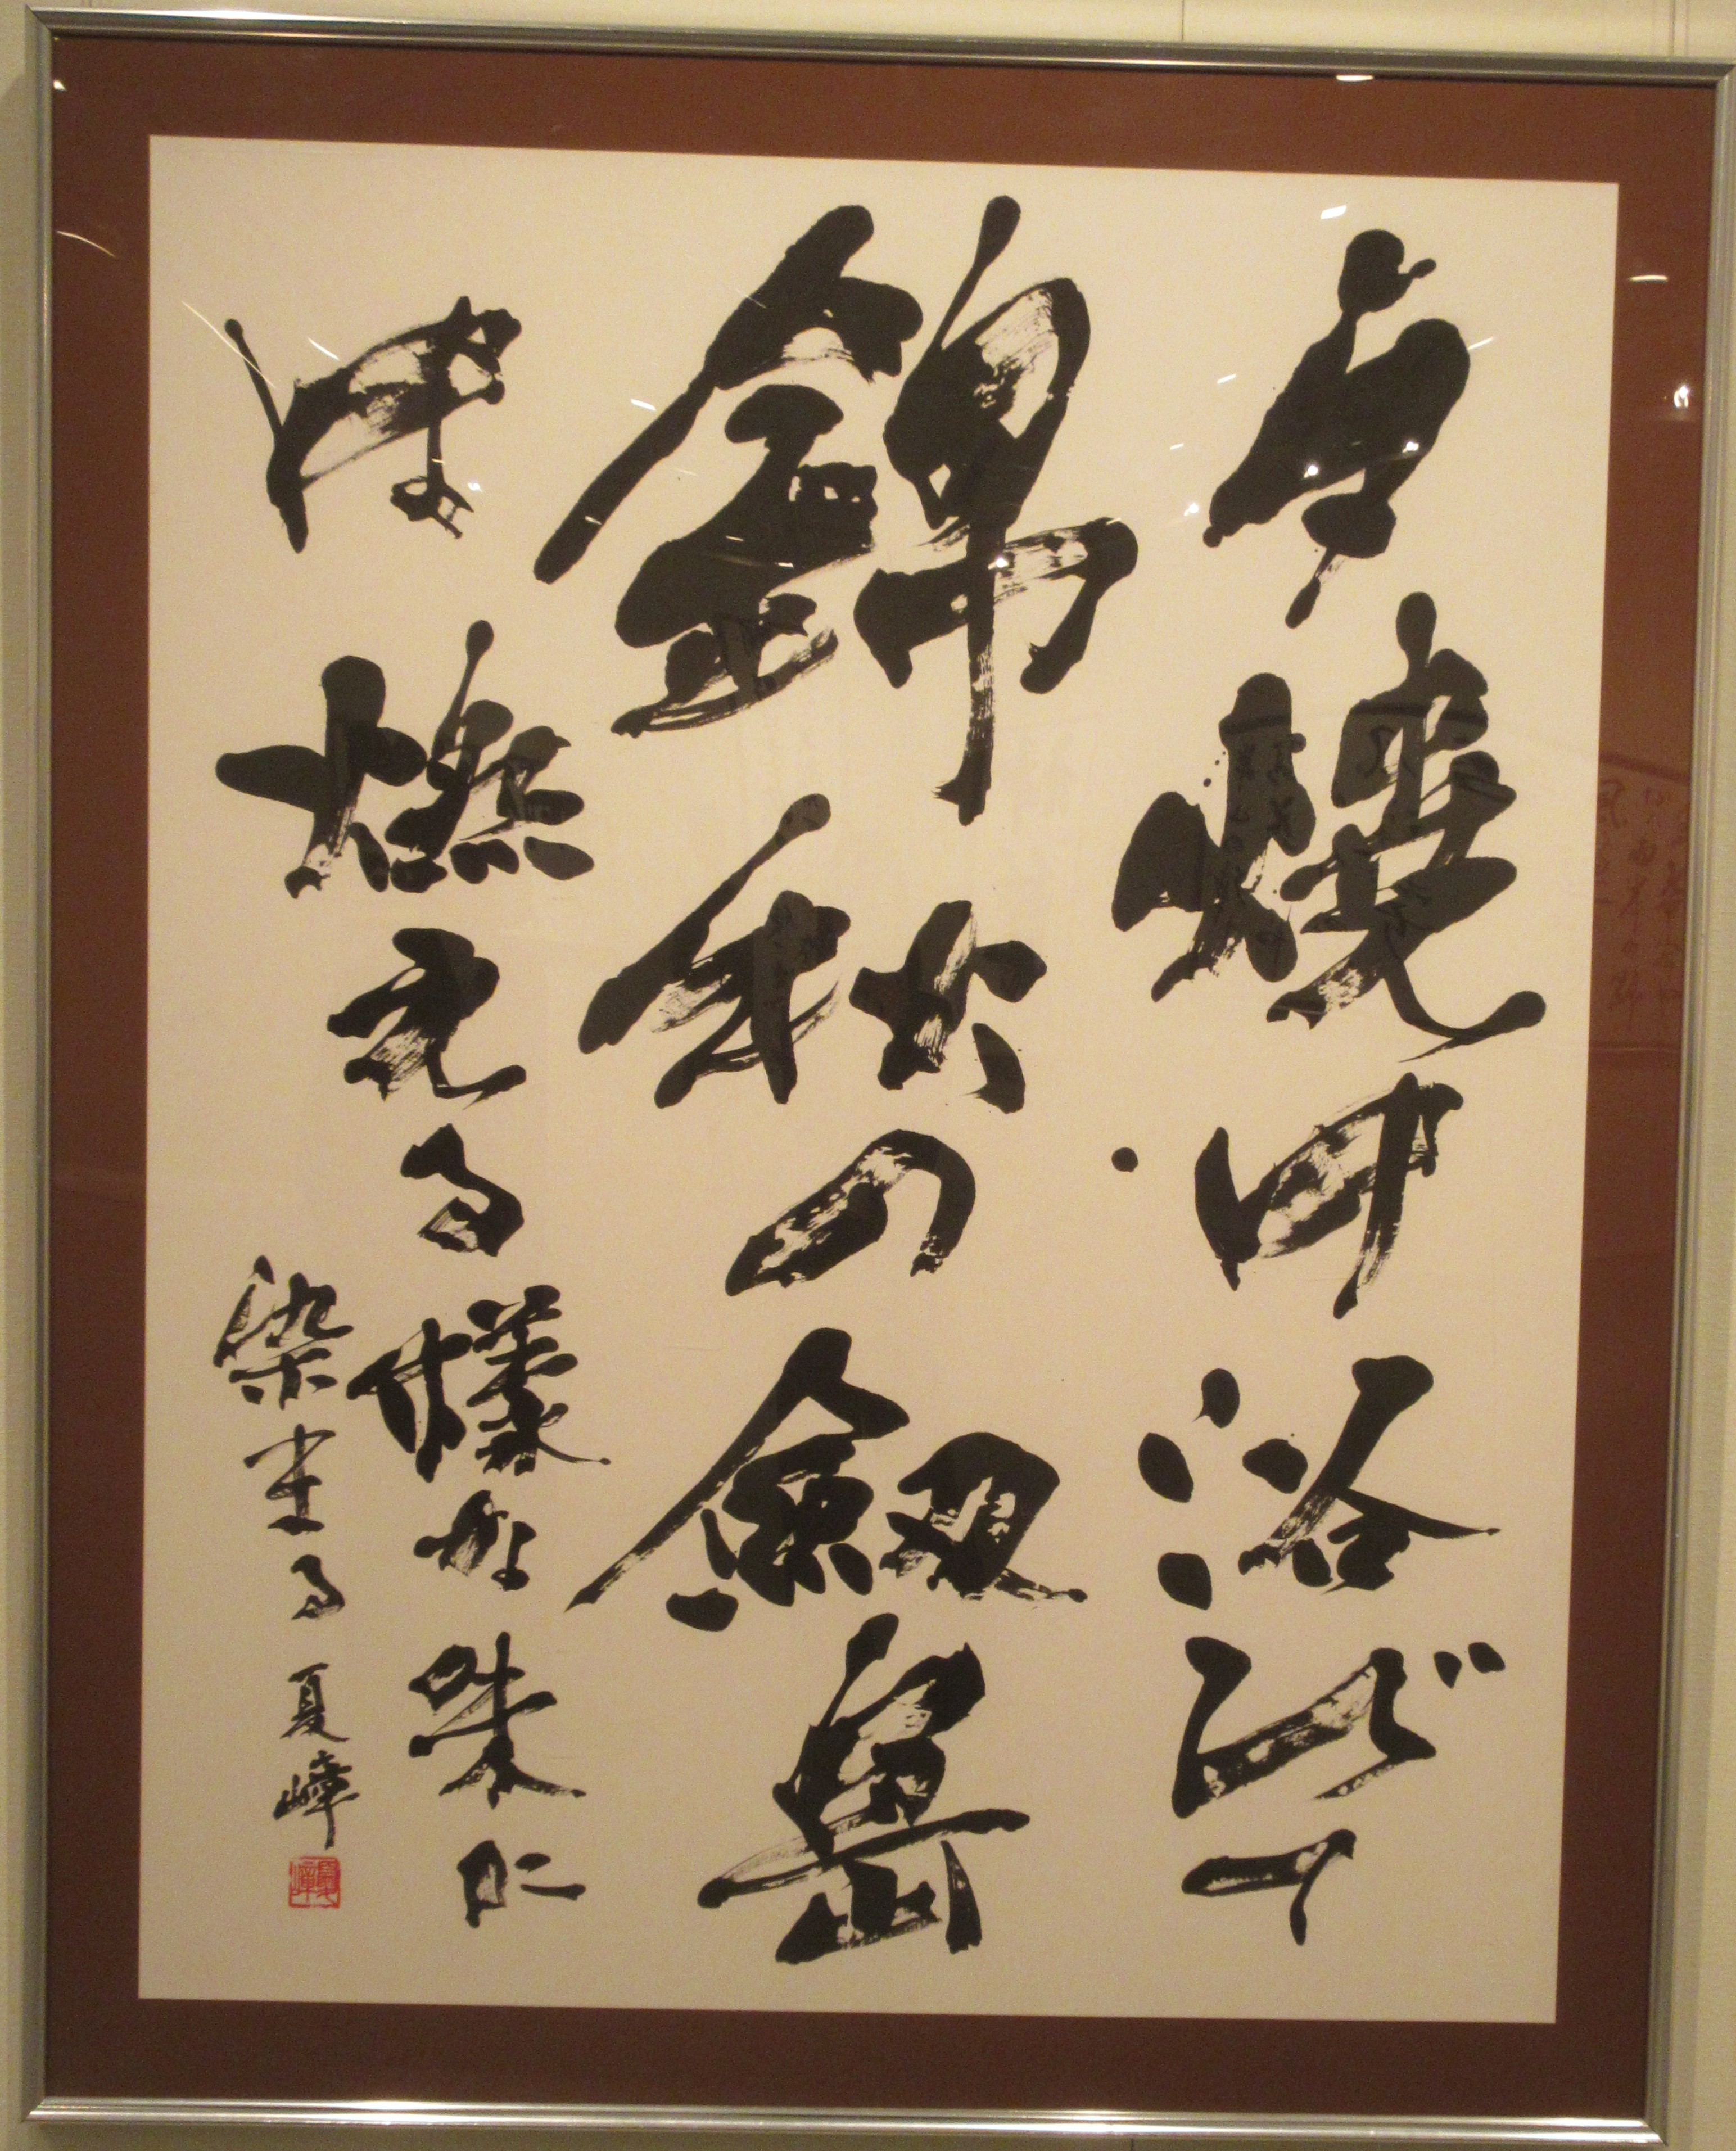 夕燒け浴びて
錦秋の劔岳
は燃える様な朱に
染まる 夏嶂